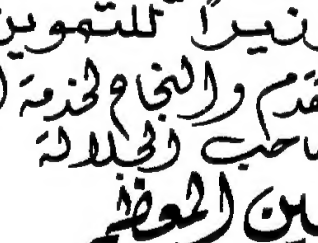 وزيراً للتموين
التقدم والنجاح لخدمة
صاحب الجلالة
المعظم